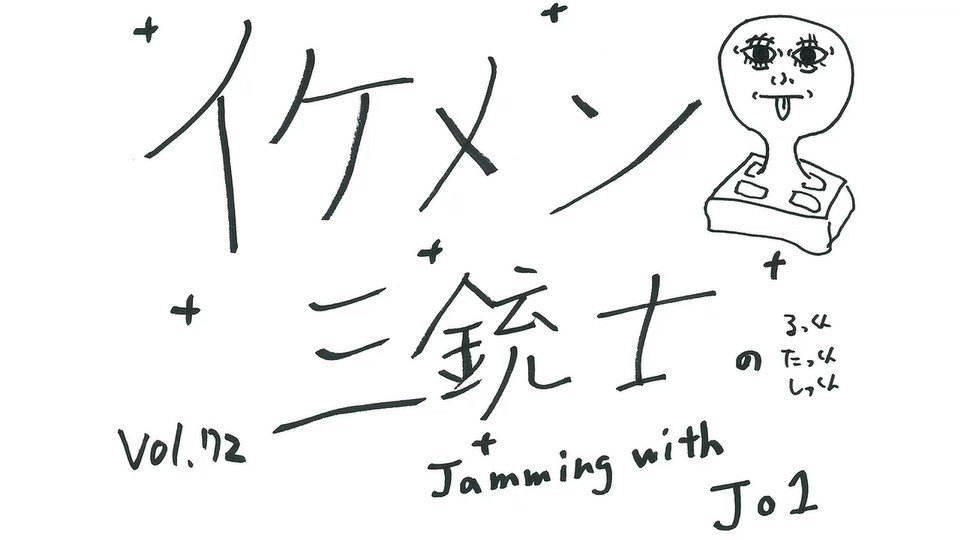 イケメン
三銃士
の
るっくん
たっくん
しっくん
Vol.72
Jamming with
Jo1